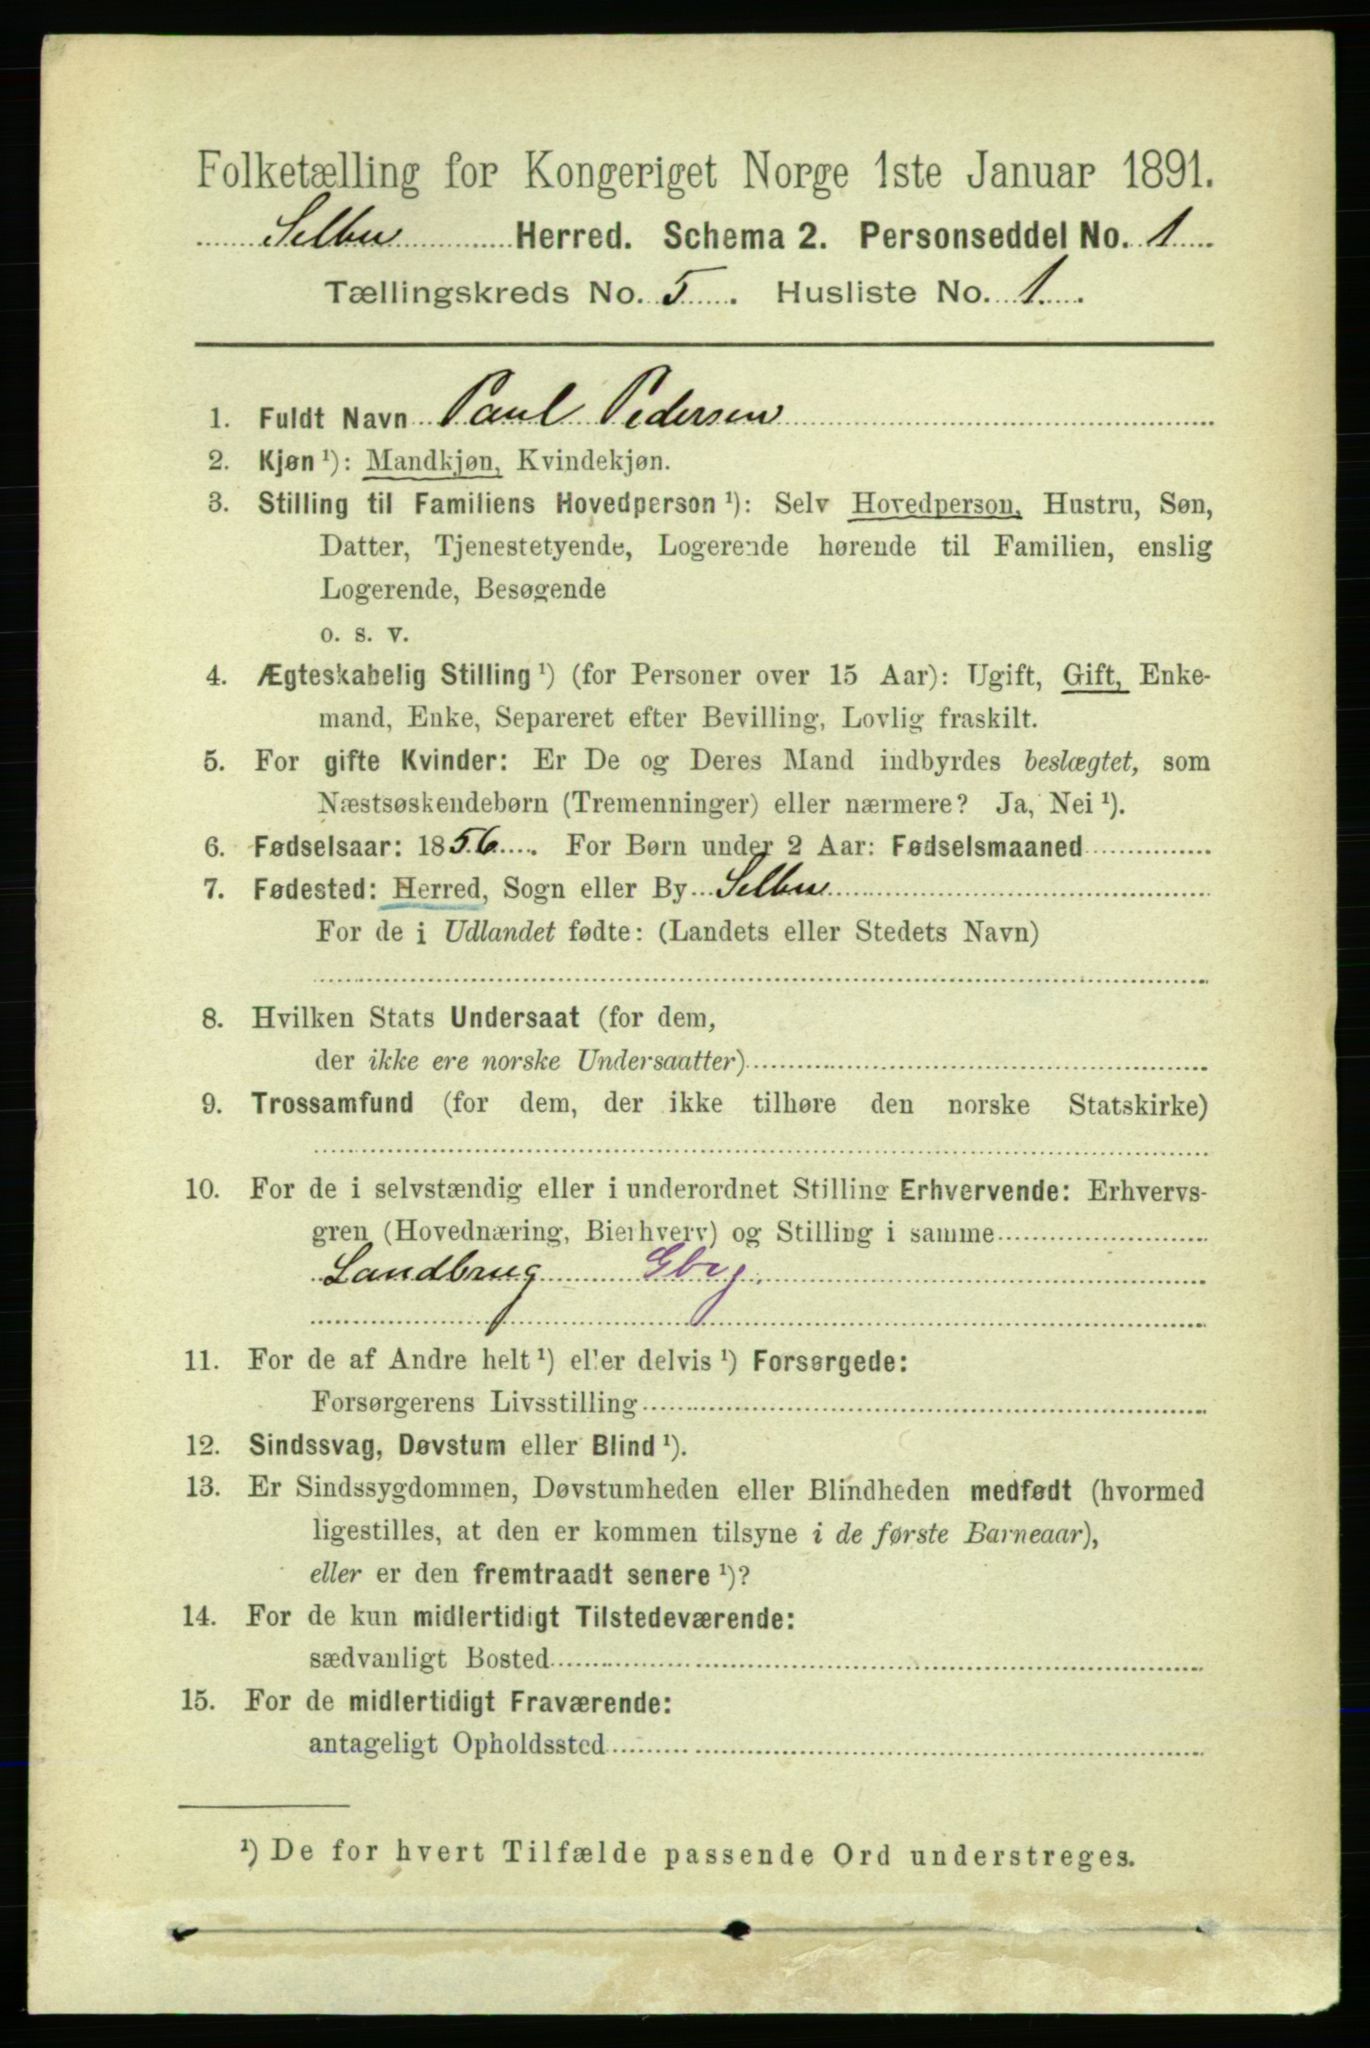 Folketælling for Kongeriget Norge 1ste Januar 1891.
Selbu Herred. Schema 2. Personseddel No. 1
Tællingskreds No. 5. Husliste No. 1.
1. Fuldt Navn Paul Pedersen
2. Kjøn ¹): Mandkjøn, Kvindekjøn.
3. Stilling til Familiens Hovedperson ¹): Selv Hovedperson, Hustru, Søn,
Datter, Tjenestetyende, Logerende hørende til Familien, enslig
Logerende, Besøgende
o. s. v.
4. Ægteskabelig Stilling ¹) (for Personer over 15 Aar): Ugift, Gift, Enke-
mand, Enke, Separeret efter Bevilling, Lovlig fraskilt.
5. For gifte Kvinder: Er De og Deres Mand indbyrdes beslægtet, som
Næstsøskendebørn (Tremenninger) eller nærmere? Ja, Nei ¹).
6. Fødselsaar: 1856. For Børn under 2 Aar: Fødselsmaaned
7. Fødested: Herred, Sogn eller By Selbu
For de i Udlandet fødte: (Landets eller Stedets Navn)
8. Hvilken Stats Undersaat (for dem,
der ikke ere norske Undersaatter)
9. Trossamfund (for dem, der ikke tilhøre den norske Statskirke)
10. For de i selvstændig eller i underordnet Stilling Erhvervende: Erhvervs-
gren (Hovednæring, Bierhverv) og Stilling i samme
Landbrug Gbrj.
11. For de af Andre helt ¹) eller delvis ¹) Forsørgede:
Forsørgerens Livsstilling
12. Sindssvag, Døvstum eller Blind ¹).
13. Er Sindssygdommen, Døvstumheden eller Blindheden medfødt (hvormed
ligestilles, at den er kommen tilsyne i de første Barneaar),
eller er den fremtraadt senere ¹)?
14. For de kun midlertidigt Tilstedeværende:
sædvanligt Bosted
15. For de midlertidigt Fraværende:
antageligt Opholdssted
¹) De for hvert Tilfælde passende Ord understreges.